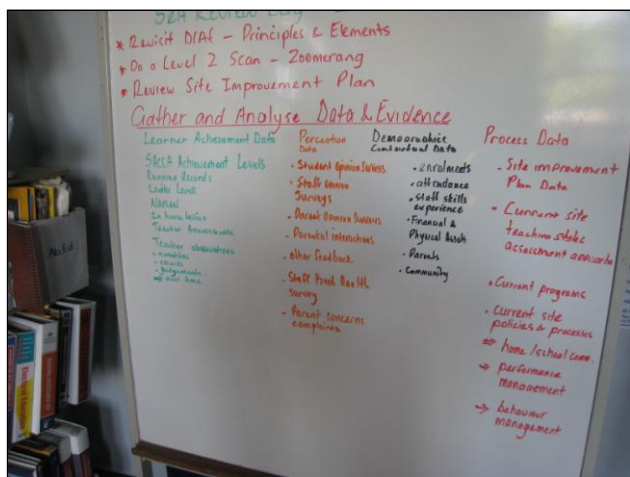 Self Review Day
* Revisit DIAf - Principles & Elements
* Do a Level 2 Scan - Zoomerang
* Review Site Improvement Plan
Gather and Analyse Data & Evidence
Learner Achievement Data
SACSA Achievement Levels
Running Records
Levels
NAPLAN
In house testing
Teacher
Teacher observations
• records
• judgements
Perception
Data
• Student Opinion Surveys
• Staff Opinion
Surveys
• Parent Opinion Surveys
• Parental interactions
• other Feedback
• Staff Psych Health
Survey
• Parent concerns
complaints
Demographic
Contextual Data
• enrolments
• attendance
• Staff skills
experience
• Financial &
Physical Assets
• Parents
• Community
Process Data
• Site improvement
Plan Data
• Current site
teaching styles
assessment approaches
• Current programs
• Current site
policies & processes
⇒ home/school comm.
→ performance
management
→ behaviour
management
Ab Ed